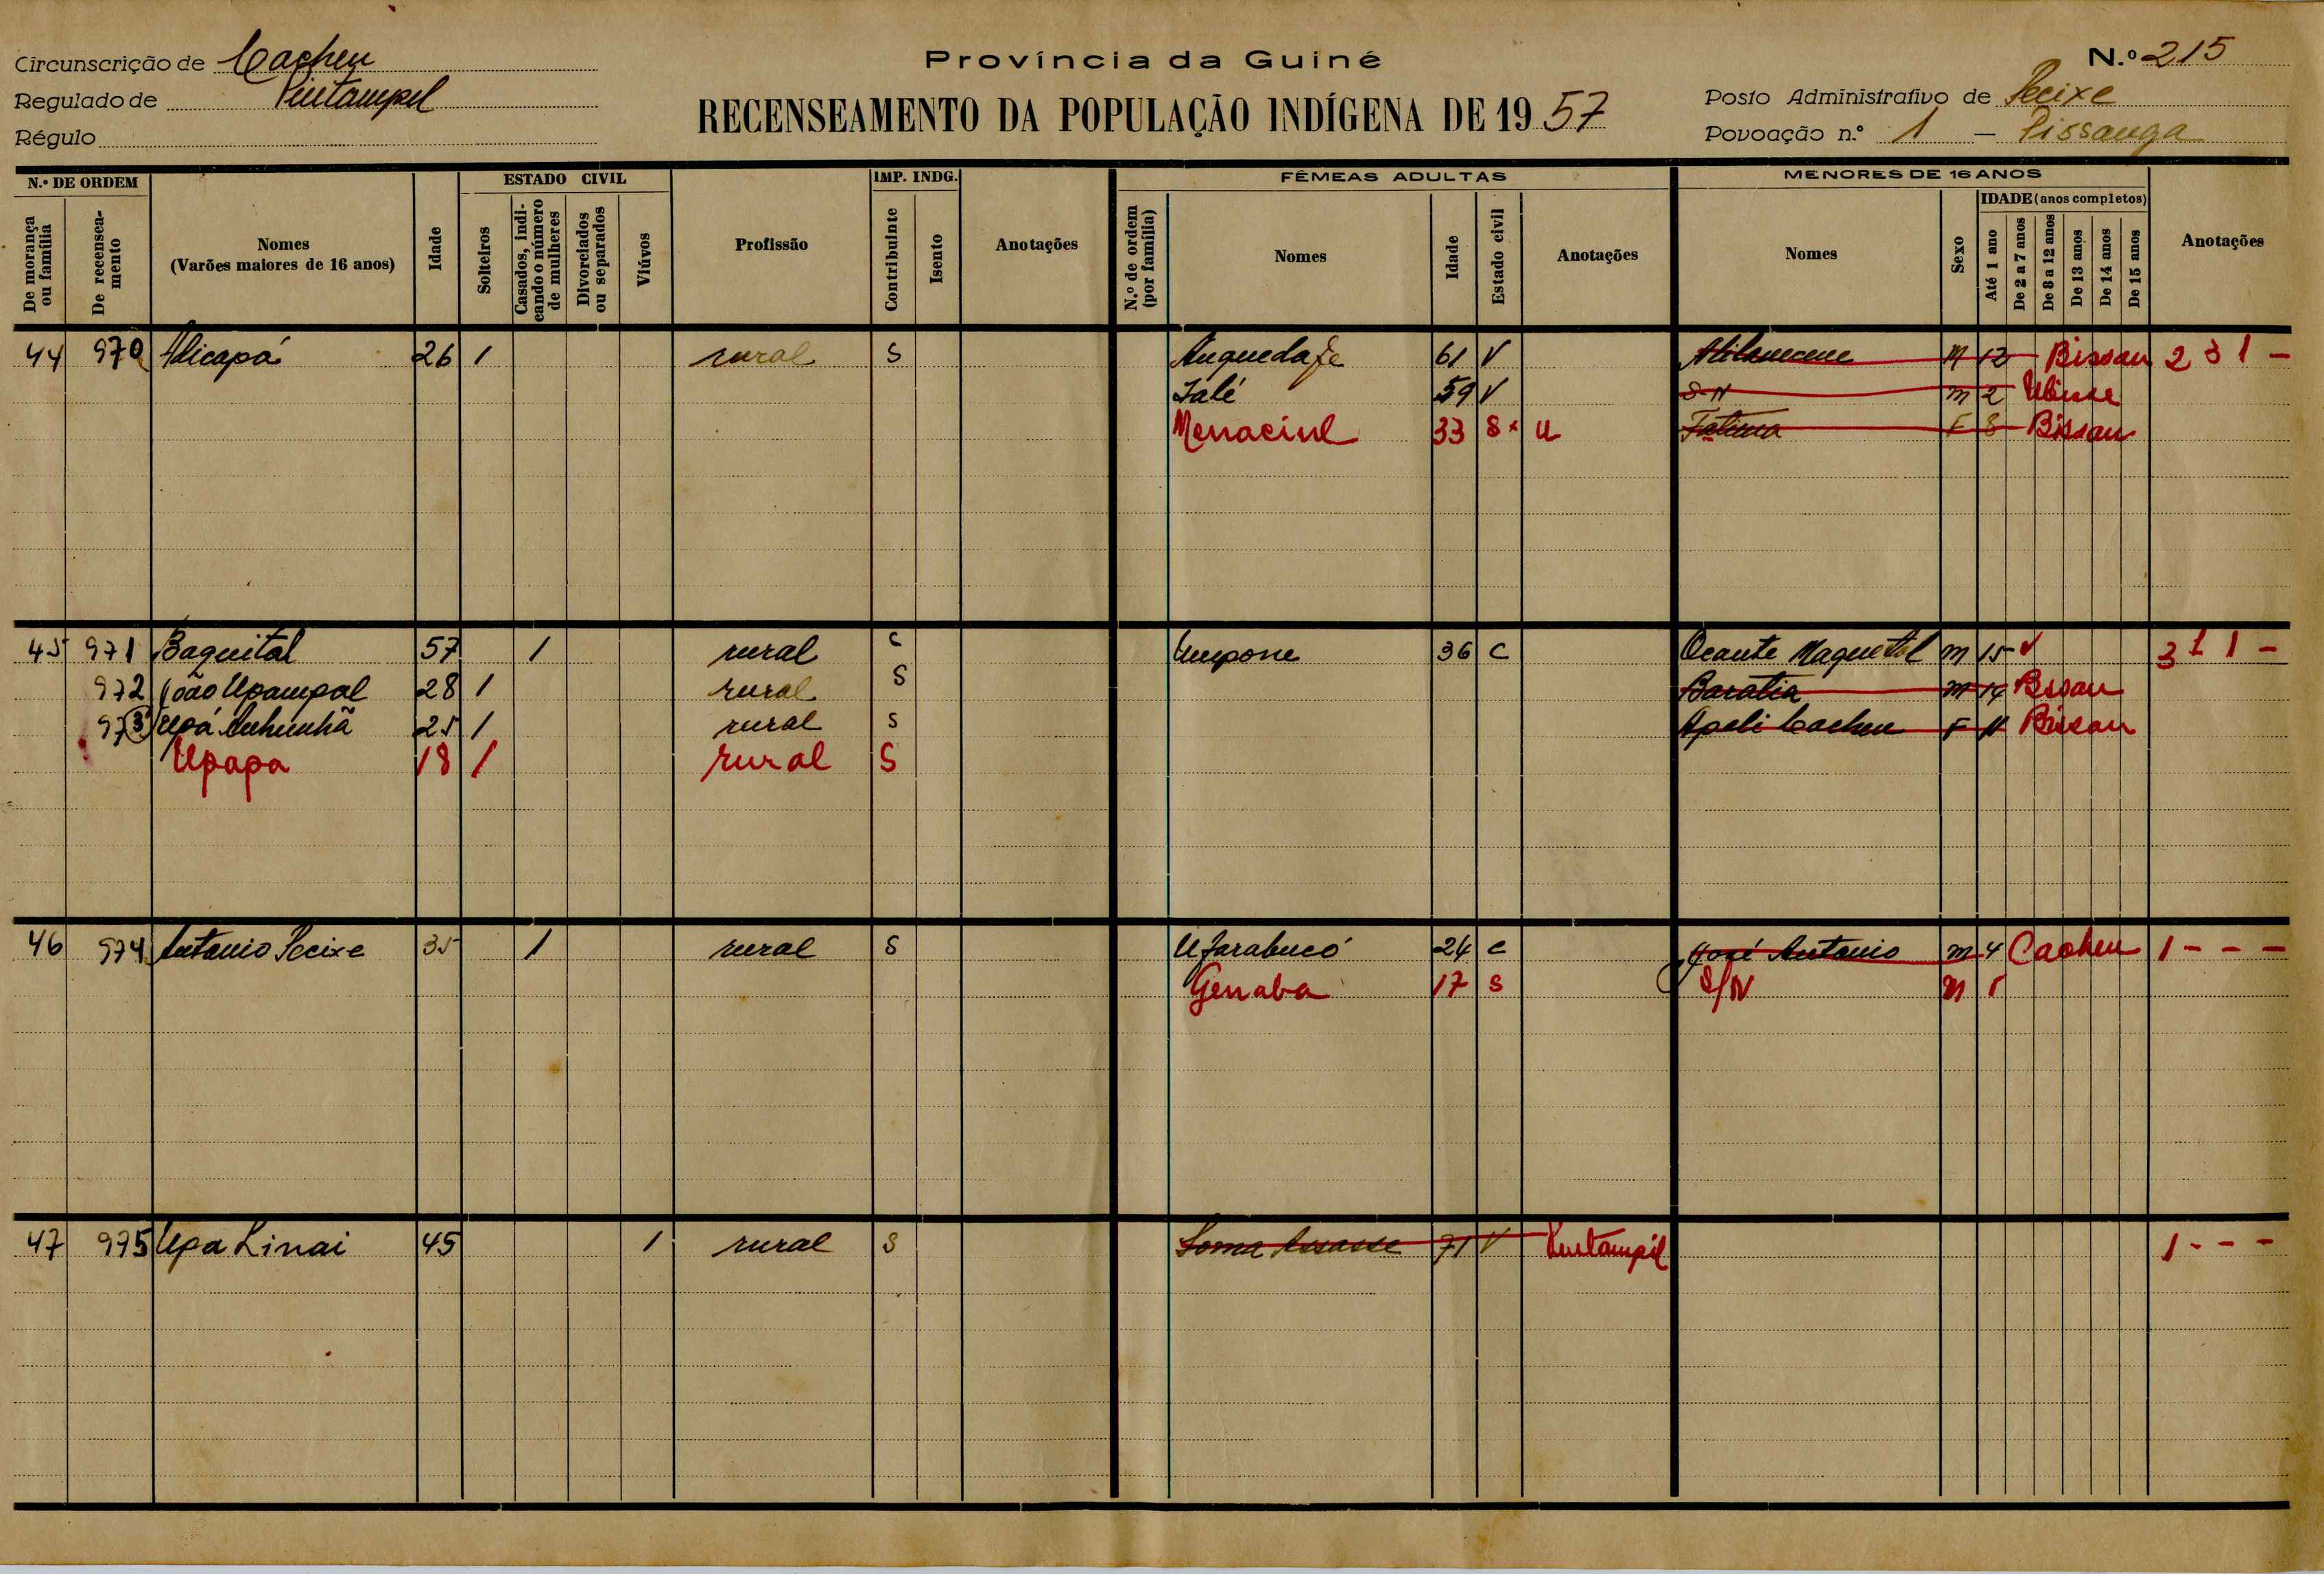 Circunscrição de Cacheu
Regulado de
Régulo
Província da Guiné
RECENSEAMENTO DA POPULAÇÃO INDÍGENA DE 19 57
N.º 215
Posto Administrativo de Pecixe
Povoação n.º 1 — Pissanga
N.º DE ORDEM
De morança ou família
De recenseamento
Nomes
(Varões maiores de 16 anos)
Idade
ESTADO CIVIL
Solteiros
Casados, indicando o número de mulheres
Divorciados ou separados
Viúvos
Profissão
IMP. INDG.
Contribuinte
Isento
Anotações
FÊMEAS ADULTAS
N.º de ordem (por família)
Nomes
Idade
Estado civil
Anotações
MENORES DE 16 ANOS
Nomes
Sexo
IDADE (anos completos)
Até 1 ano
De 2 a 7 anos
De 8 a 12 anos
De 13 anos
De 14 anos
De 15 anos
Anotações
44 970 Adicapá 26 1 rural S 61 V M 12 Bissau 2 3 1 -
Jalé 59 V S N M 2
Menaciul 33 S x U Fatima F 8 Bissau
45 971 Baquital 57 1 rural C Umpone 36 C Ocante Maquetol M 15 V 3 1 1 -
972 João Upampal 28 1 rural S Baratia M 14 Bissau
973 Upá 25 1 rural S Apali Cacheu F 11 Bissau
Upapa 18 1 rural S
46 974 Antonio Pecixe 35 1 rural S Ufarabucó 24 C José Antonio M 4 Cacheu 1 - - -
Genaba 17 S S/N M 1
47 975 Upa Linai 45 1 rural S 71 V 1 - - -